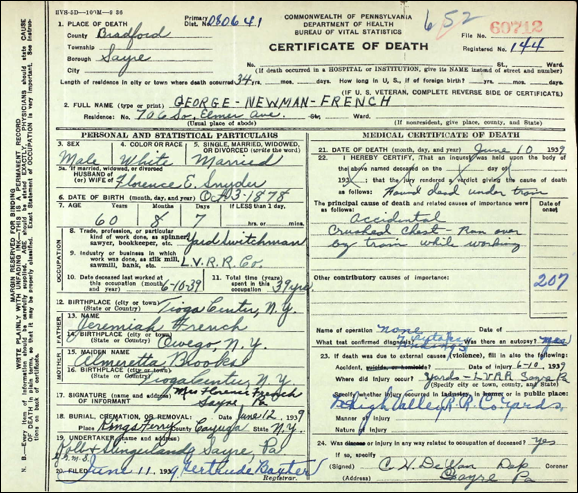 HVS-5D—10M—8 36
COMMONWEALTH OF PENNSYLVANIA
DEPARTMENT OF HEALTH
BUREAU OF VITAL STATISTICS
CERTIFICATE OF DEATH
652
File No. 60712
Registered No. 144
Primary Dist. No. 080641
1. PLACE OF DEATH
County Bradford
Township
Borough Sayre
City No. St. Ward.
(If death occurred in a HOSPITAL or INSTITUTION, give its NAME instead of street and number)
Length of residence in city or town where death occurred 34 yrs. mos. days. How long in U. S., if of foreign birth? yrs. mos. days.
(IF U. S. VETERAN, COMPLETE REVERSE SIDE OF CERTIFICATE)
2. FULL NAME (type or print) GEORGE-NEWMAN-FRENCH
Residence: No. 706 So. Elmer Ave. St. Ward
(Usual place of abode) (If nonresident, give place, county, and State)
MARGIN RESERVED FOR BINDING
PERSONAL AND STATISTICAL PARTICULARS
3. SEX Male
4. COLOR OR RACE White
5. SINGLE, MARRIED, WIDOWED, OR DIVORCED (write the word) Married
5a. If married, widowed, or divorced
HUSBAND of
(or) WIFE of Florence E. Snyder
6. DATE OF BIRTH (month, day, year) Oct 3 1878
7. AGE YEARS MONTHS DAYS If LESS than 1 day,
60 8 7 hrs. or mins.
OCCUPATION
8. Trade, profession, or particular kind of work done, as spinner, sawyer, bookkeeper, etc. Yard switchman
9. Industry or business in which work was done, as silk mill, sawmill, bank, etc. L.V.R.R. Co.
10. Date deceased last worked at this occupation (month and year) 6-10-39
11. Total time (years) spent in this occupation 39 yrs
12. BIRTHPLACE (city or town) (State or Country) Tioga Center, N.Y.
FATHER
13. NAME Jeremiah French
14. BIRTHPLACE (city or town) (State or Country) Owego, N.Y.
MOTHER
15. MAIDEN NAME Almeretta Brooks
16. BIRTHPLACE (city or town) (State or Country) Tioga Center, N.Y.
17. SIGNATURE OF INFORMANT Mrs Florence French
Sayre Pa
18. BURIAL, CREMATION, OR REMOVAL: Date June 12, 1939
Place Kings Ferry Cayuga State N.Y.
19. UNDERTAKER (name and address)
Sayre, Pa
20. FILED June 11 1939 Gertrude Baxter
Registrar.
MEDICAL CERTIFICATE OF DEATH
21. DATE OF DEATH (month, day, and year) June 10 1939
22. I HEREBY CERTIFY, That an inquiry was held upon the body of the above named deceased on the day of
193 ; the jury rendered a verdict giving the cause of death as follows: Found dead under train
The principal cause of death and related causes of importance were as follows: Date of onset
Accidental
Crushed Chest - Run over
by train while working
Other contributory causes of importance: 207
Name of operation none Date of
What test confirmed diagnosis? Was there an autopsy? yes
23. If death was due to external causes (violence), fill in also the following:
Accident, suicide, or homicide? Date of injury 6-10 1939
Where did injury occur? Yards - L.V.R.R. Sayre Pa
(Specify city or town, county, and State)
Specify whether injury occurred in industry, in home, or in public place:
Lehigh Valley R.R. Co yards
Manner of injury
Nature of injury
24. Was disease or injury in any way related to occupation of deceased? yes
If so, specify
(Signed) C. H. De Wan Dep Coroner
Sayre Pa